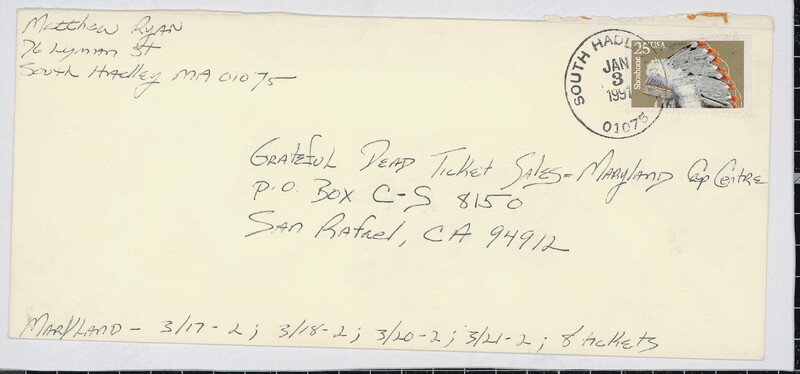 Matthew Ryan
76 Lyman St
South Hadley MA 01075
SOUTH HADLEY
JAN
3
1991
01075
25 USA
Shoshone
Grateful Dead Ticket Sales - Maryland Cap Centre
P.O. Box C-S 8150
San Rafael, CA 94912
Maryland - 3/17-2; 3/18-2; 3/20-2; 3/21-2; 8 tickets